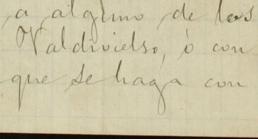 , a alguno de los
Valdivielso, ó con
que se haga con